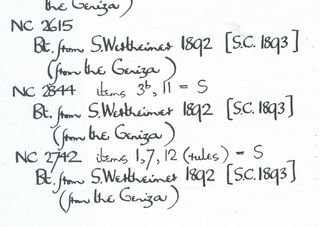 the Geniza)
NC 2615
Bt. from S. Wertheimer 1892 [S.C. 1893]
(from the Geniza)
NC 2844 items 3b, 11 = S
Bt. from S. Wertheimer 1892 [S.C. 1893]
(from the Geniza)
NC 2742 items 1, 7, 12 (rules) = S
Bt. from S. Wertheimer 1892 [S.C. 1893]
(from the Geniza)